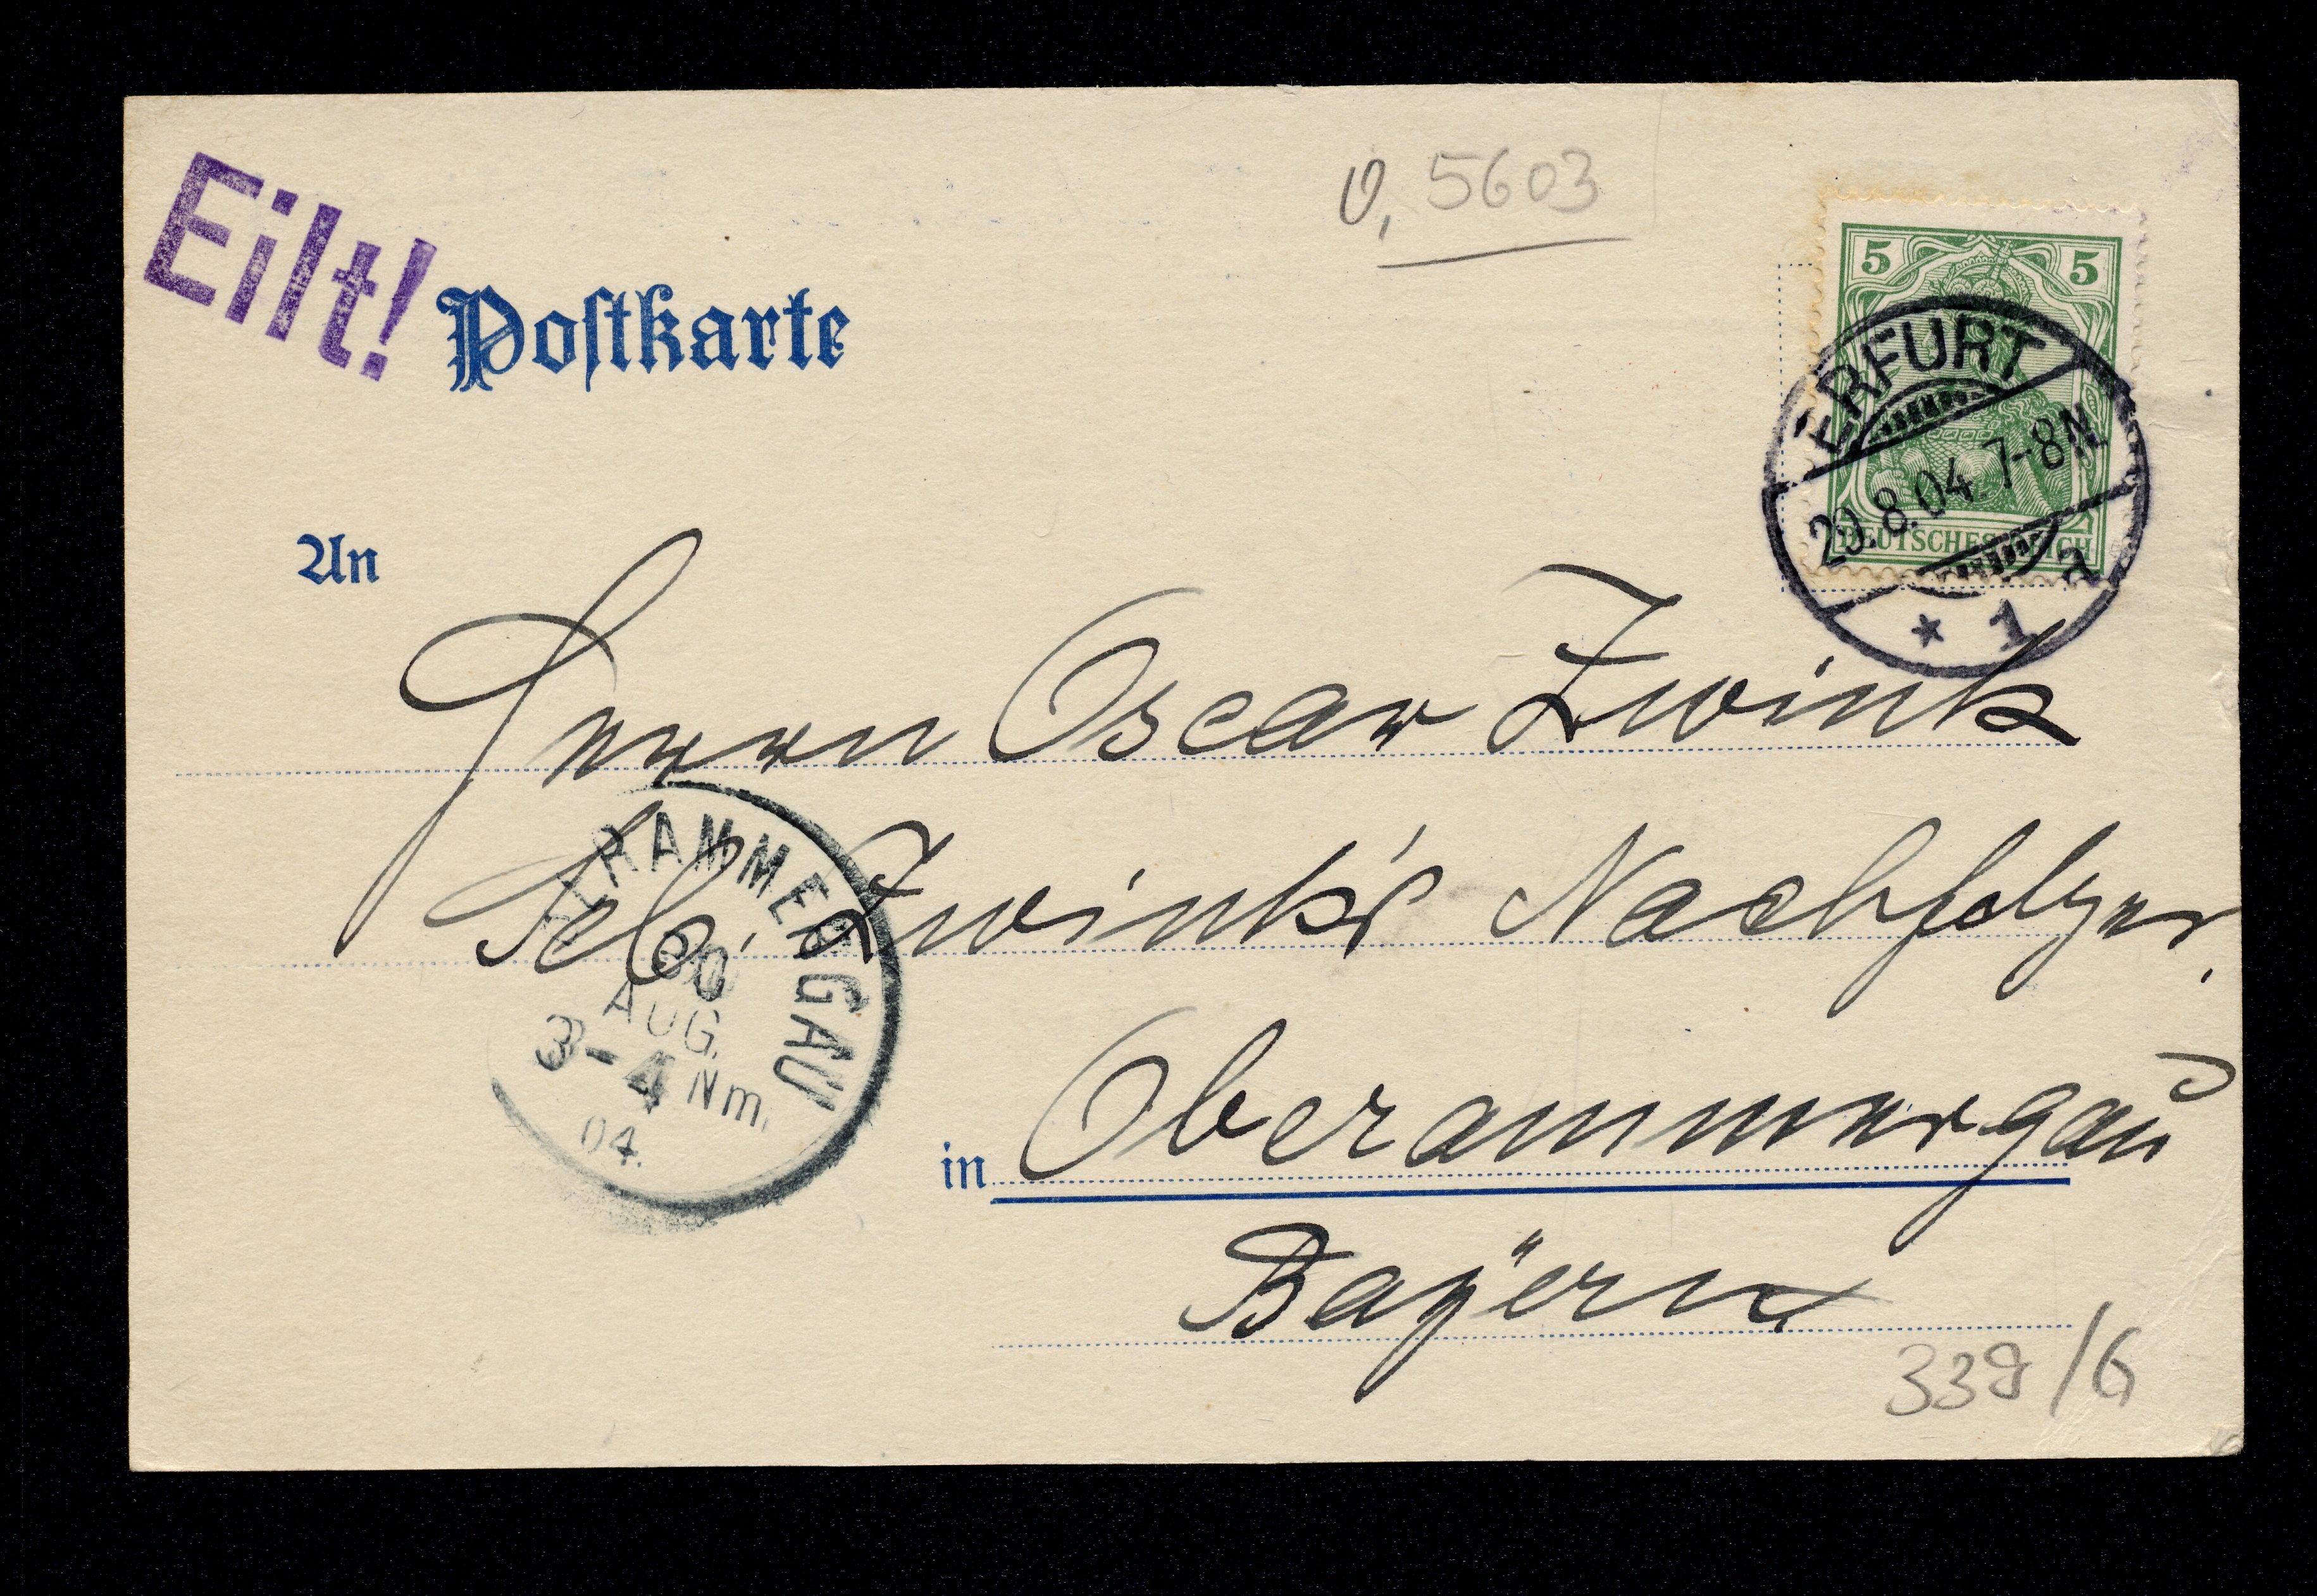 Eilt!
v, 5603
Postkarte
5 5
DEUTSCHES REICH
ERFURT
29.8.04. 7-8N.
* 1 a
An
Herrn Oscar Zwink
Seb. Zwink's Nachfolger,
OBERAMMERGAU
30
AUG.
3-4 Nm.
04.
in Oberammergau
Bayern
339/G